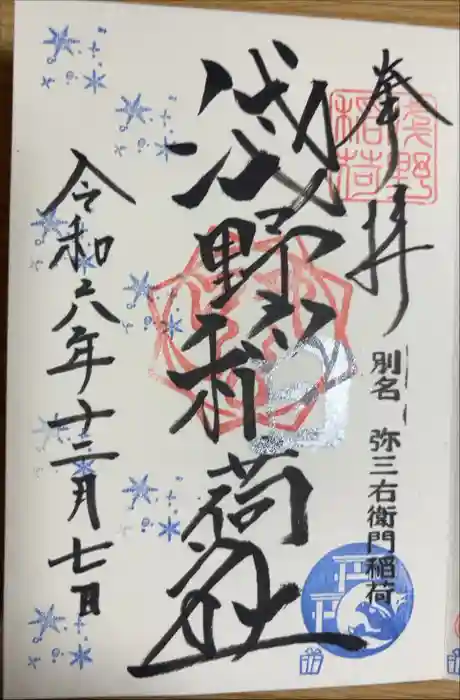 奉拝
浅野稲荷
別名 弥三右衛門稲荷
浅野稲荷社
令和六年十二月七日